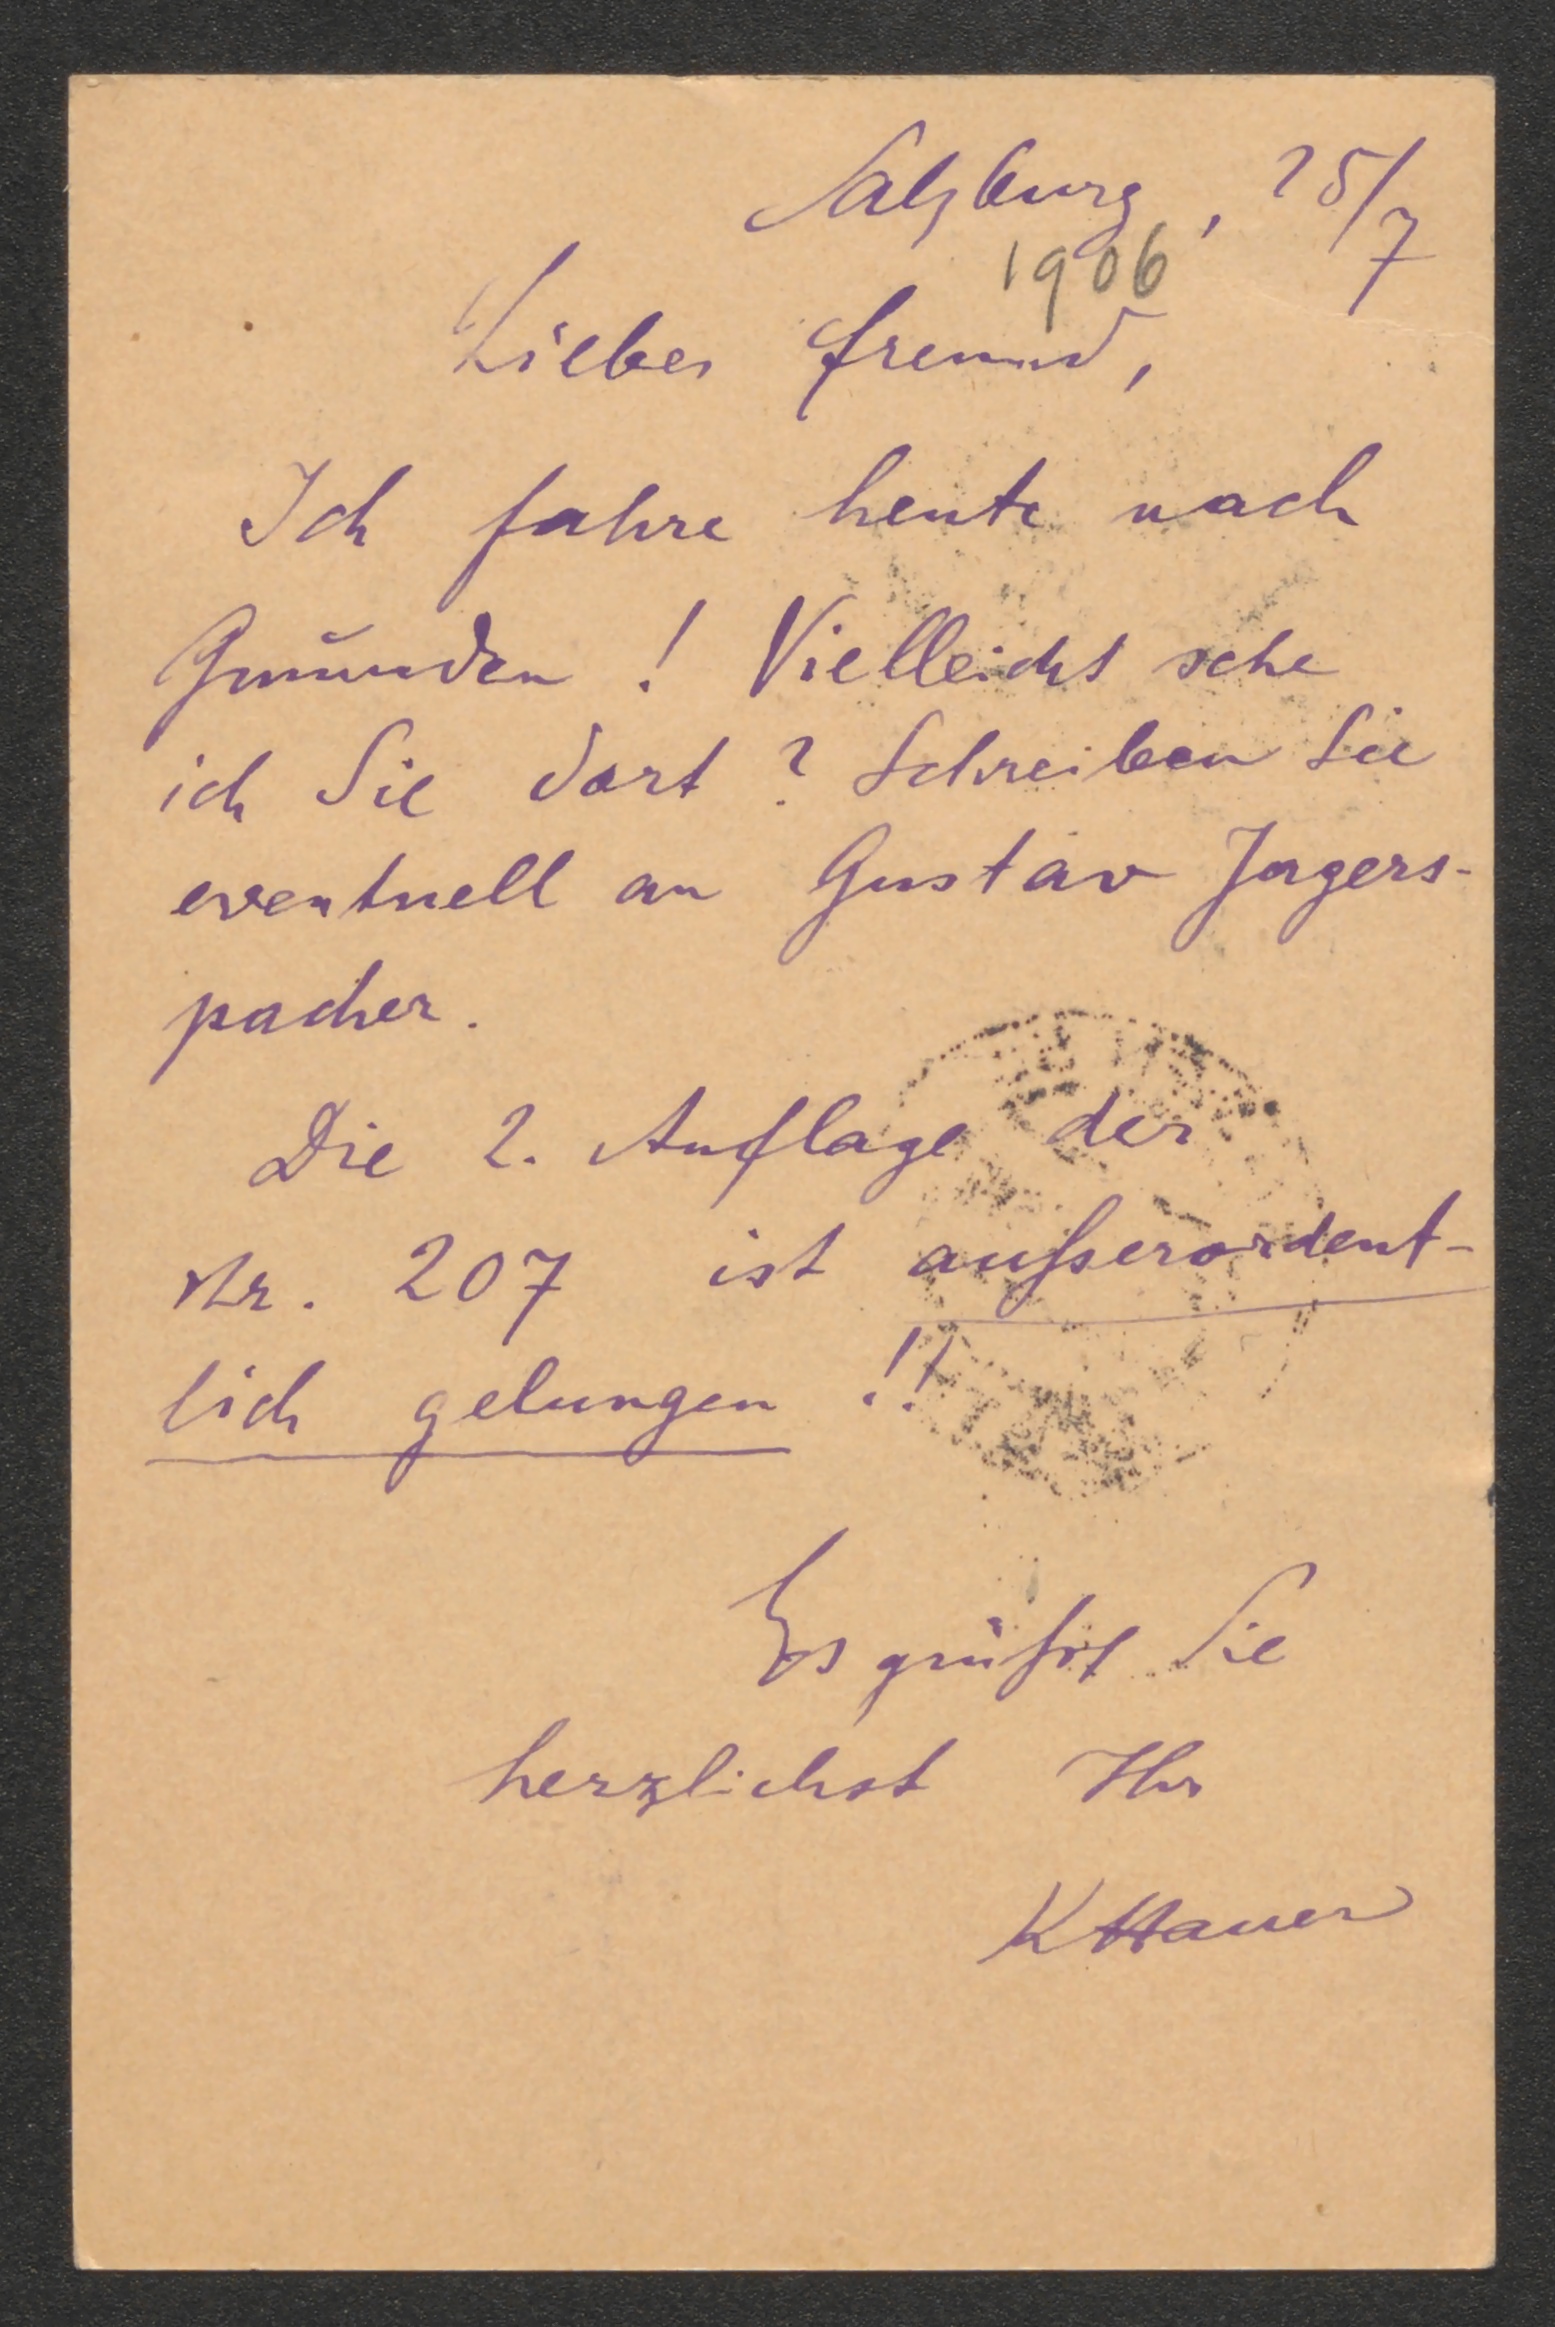 Salzburg, 25/7
1906
Lieber Freund,
Ich fahre heute nach
Gmunden! Vielleicht sehe
ich Sie dort? Schreiben Sie
eventuell an Gustav Jagers-
pacher.
Die 2. Auflage der
Nr. 207 ist außerordent-
lich gelungen!!
Es grüßt Sie
herzlichst Ihr
KHauer